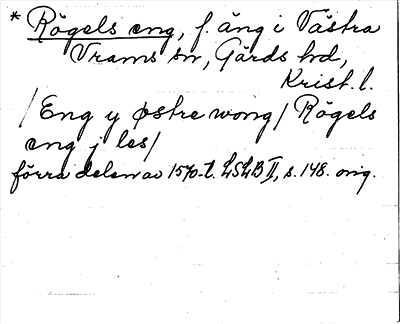 * Rögels eng, f. äng i Västra
Vrams sn, Gärds hd,
Krist. l.
/Eng y østre wong/ Rögels
eng j les/
förra delen av 1570-t. LSLB II, s. 148. orig.